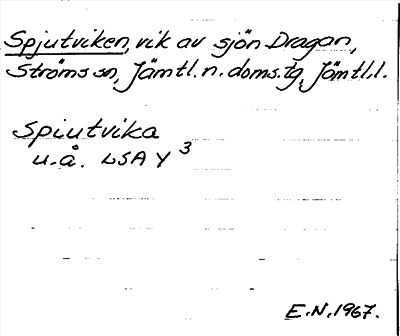 Spjutviken, vik av sjön Dragan,
Ströms sn, Jämtl. n. doms. tg, Jämtl. l.
Spiutvika
u. å. LSA Y 3
E. N. 1967.